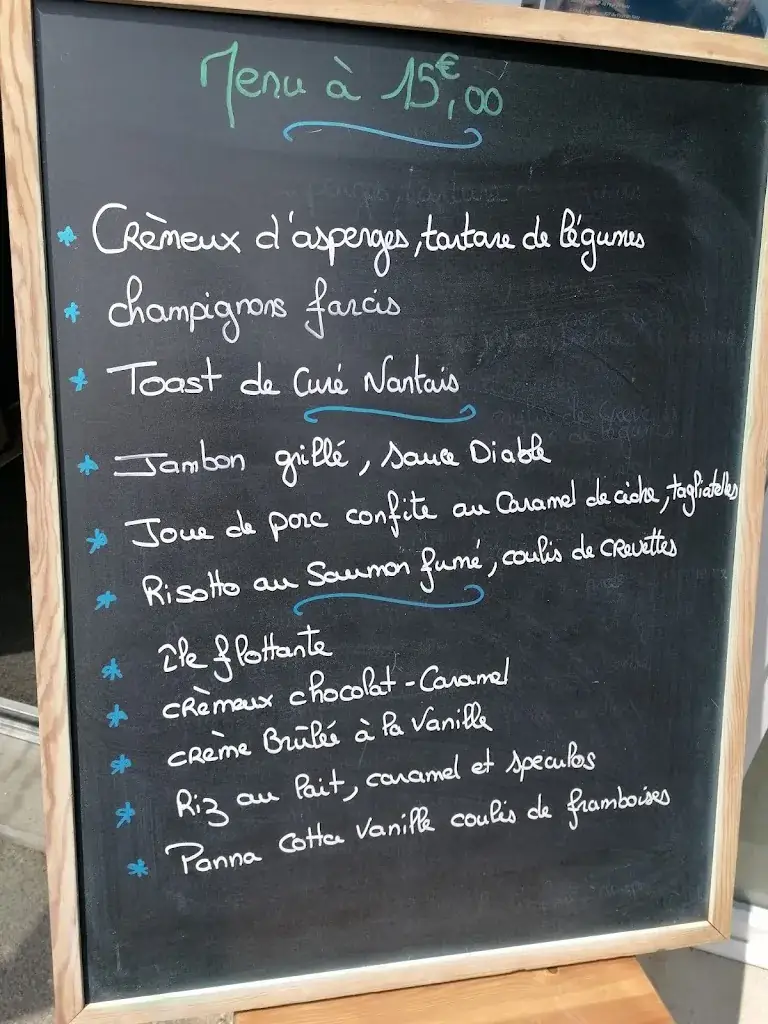 Menu à 15€,00
* Crèmeux d'asperges, tartare de légumes
* champignons farcis
* Toast de Curé Nantais
* Jambon grillé, sauce Diable
* Joue de porc confite au Caramel de cidre, tagliatelles
* Risotto au Saumon fumé, coulis de crevettes
* île flottante
* crèmeux chocolat-Caramel
* crème Brûlée à la Vanille
* Riz au lait, caramel et speculos
* Panna Cotta Vanille coulis de framboises